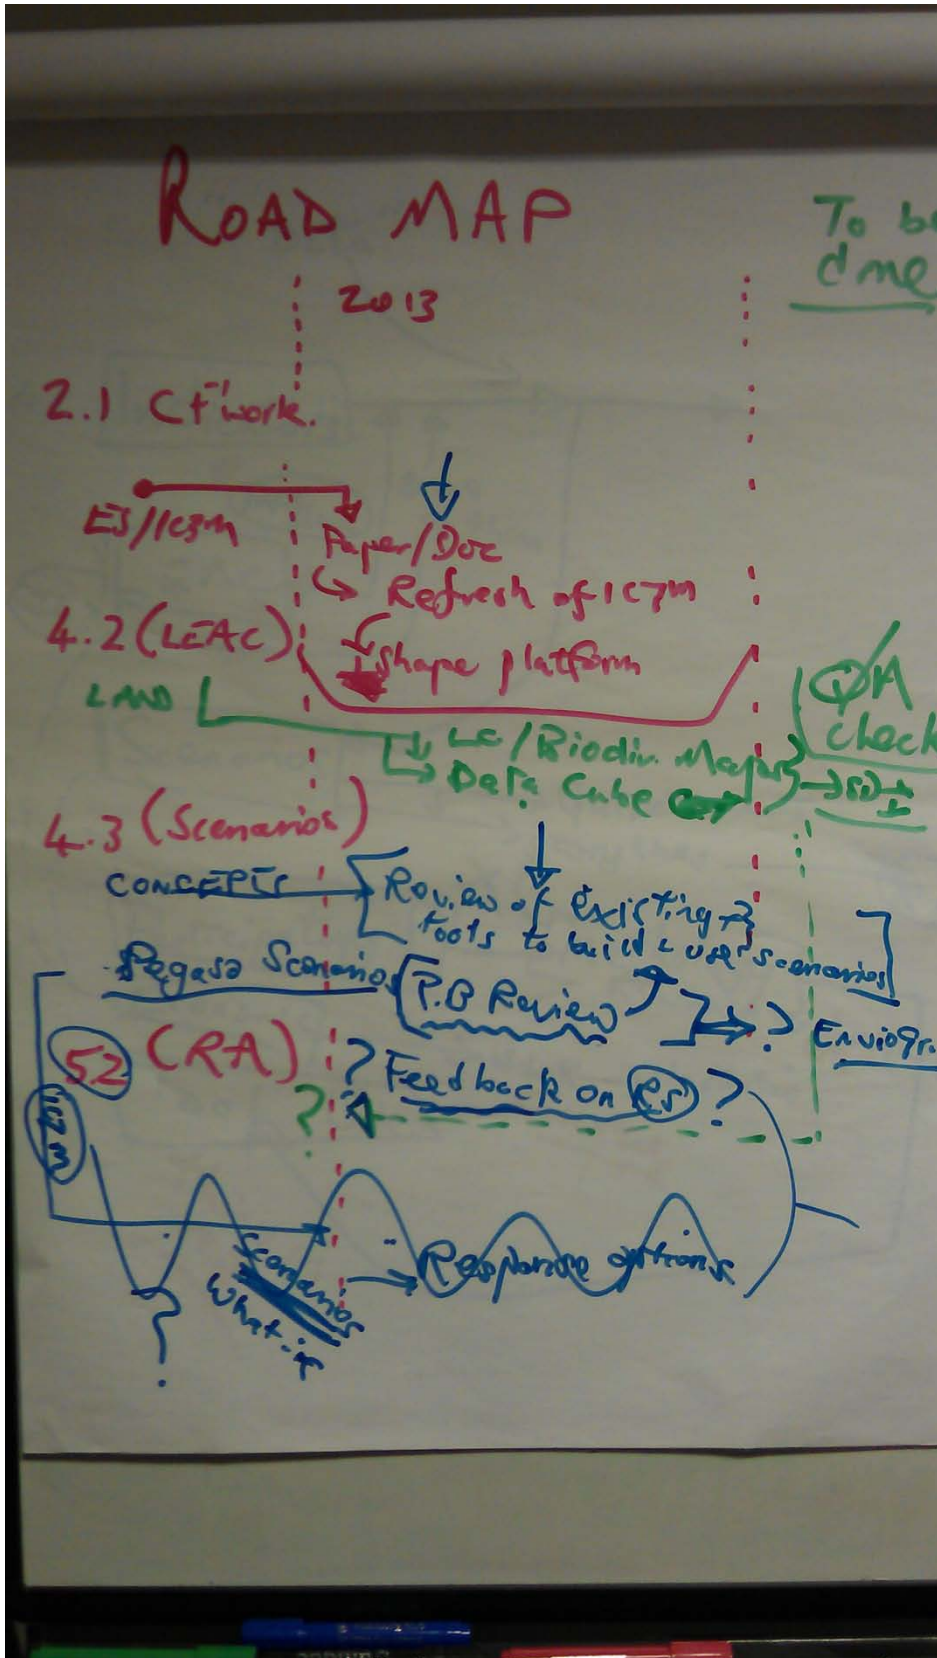 ROAD MAP
To b
dne
2013
2.1 C+ work.
Paper/Doc
Refresh of
4.2 (LEAC)
Shape platform
LAND
Q/A
check
LC/Biodiv. Maps
Data Cube
4.3 (Scenarios)
CONCEPTS
Review of existing
tools to build & use scenarios
Pegaso Scenarios
P.B Review
?
52 (RA)
? Feedback on ?
?
Scenarios
What-if
Response options
?